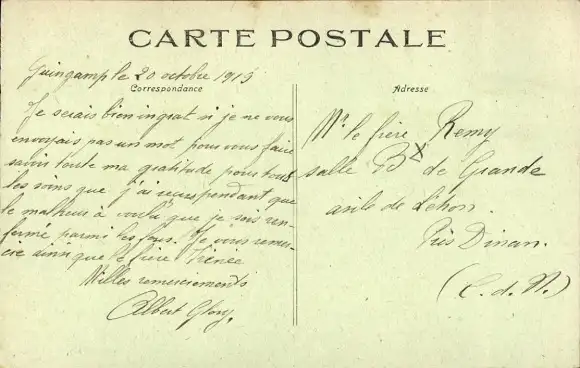 CARTE POSTALE
Guingamp le 20 octobre 1915
Correspondance
Je serais bien ingrat si je ne vous
envoyais pas un mot pour vous faire
savoir toute ma gratitude pour tous
les soins que j'ai reçus pendant que
le malheur à voulu que je sois ren-
fermé parmi les fous. Je vous remer-
cie ainsi que le frère Irénée
Milles remerciements
Albert Glory.
Adresse
Mr le frère Remy
salle de Grande
asile de Lehon.
Près Dinan.
(C. d. N.)